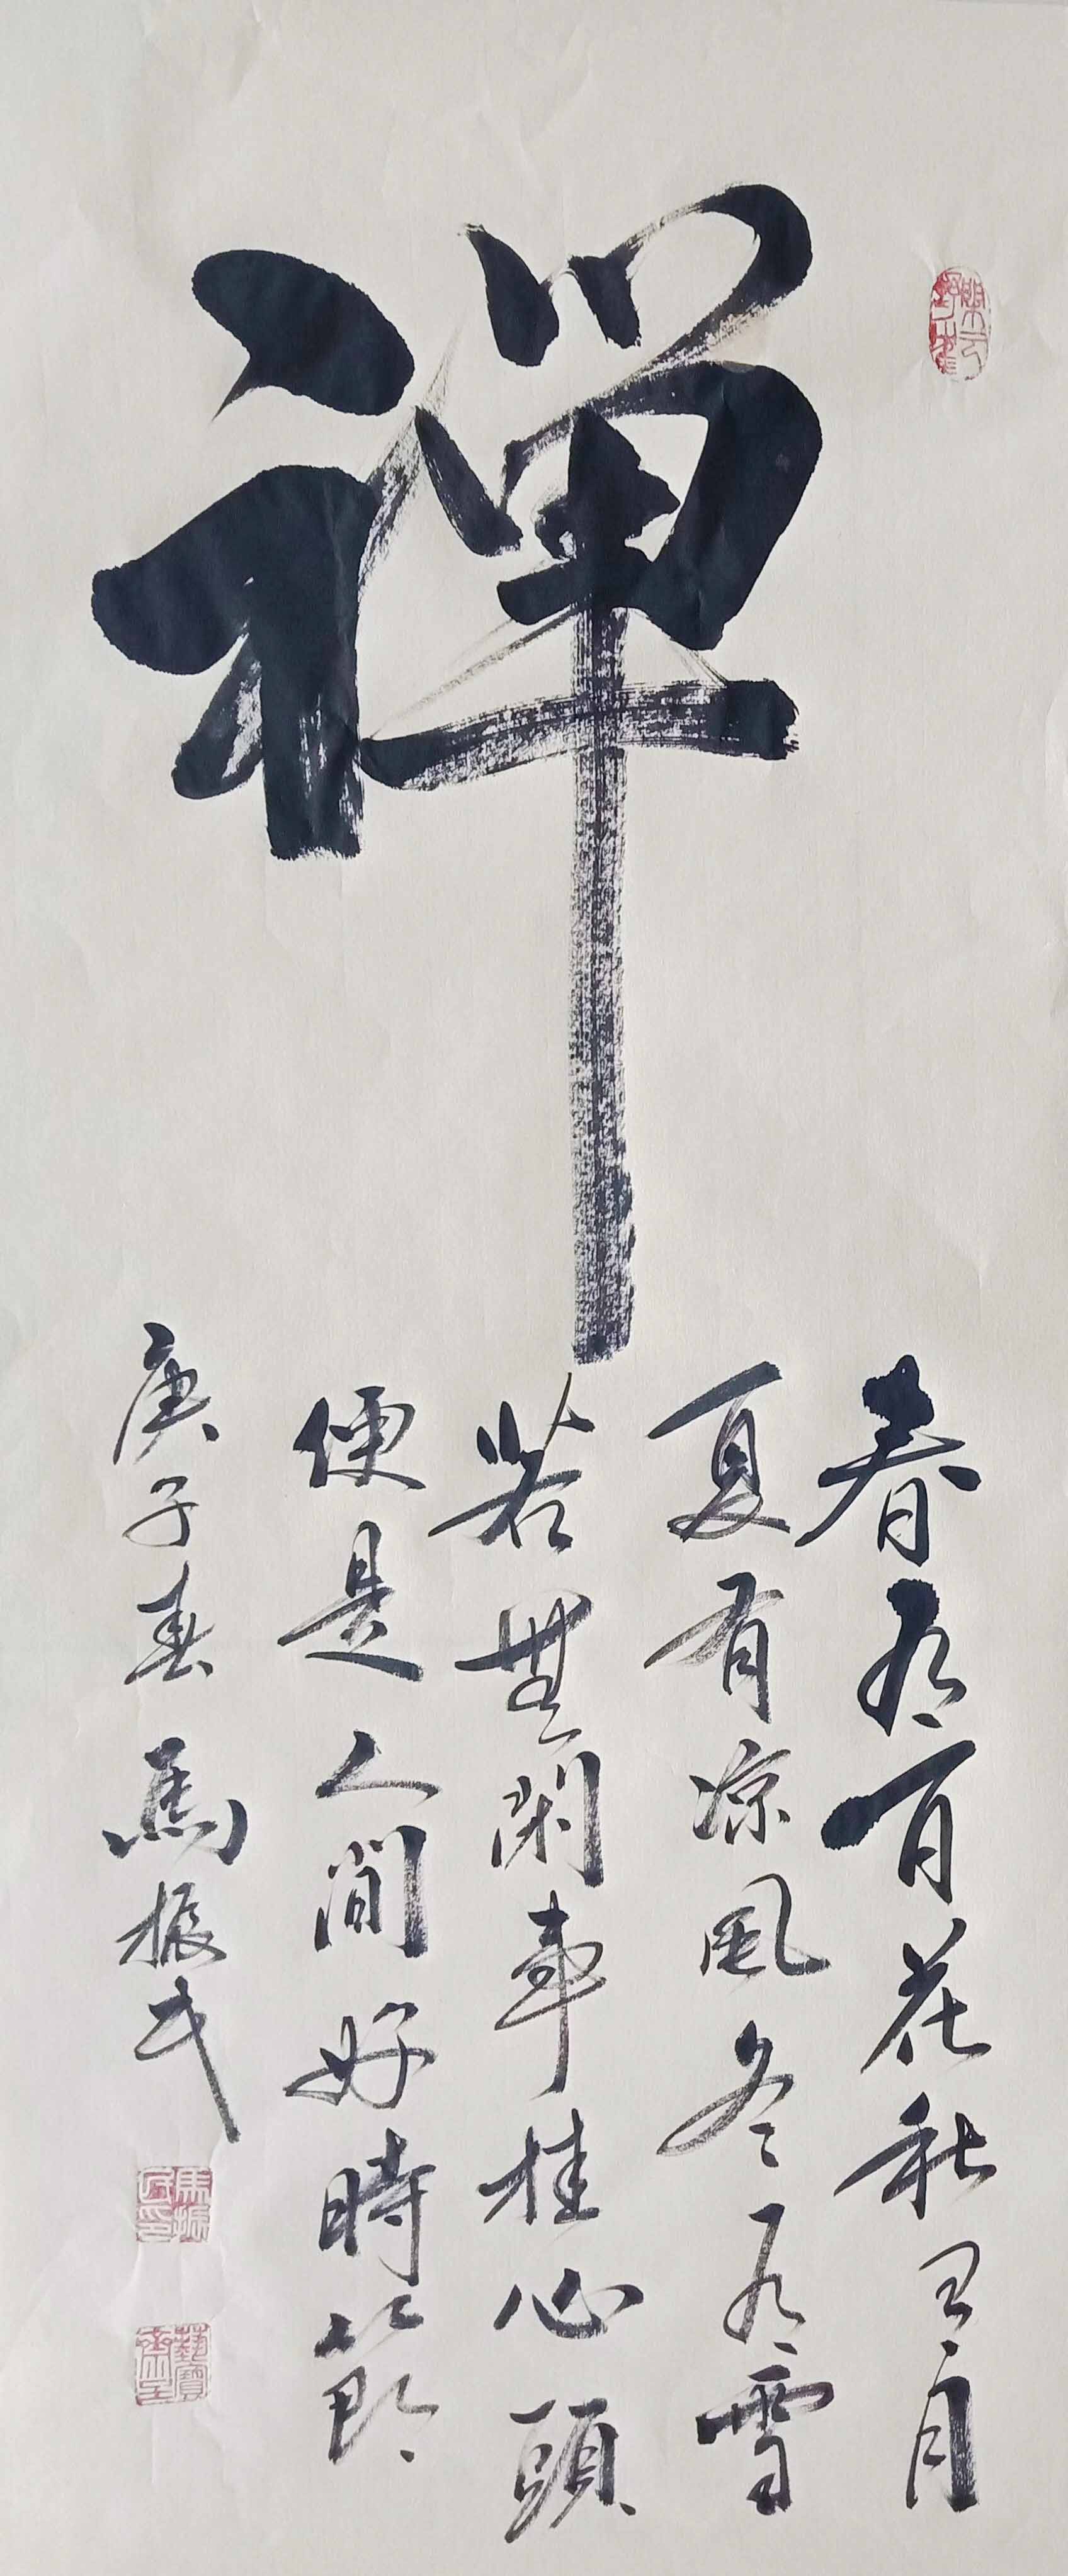 禪
春有百花秋有月
夏有凉風冬有雪
若無閑事挂心頭
便是人間好時節
庚子春 馬振民
馬振民印